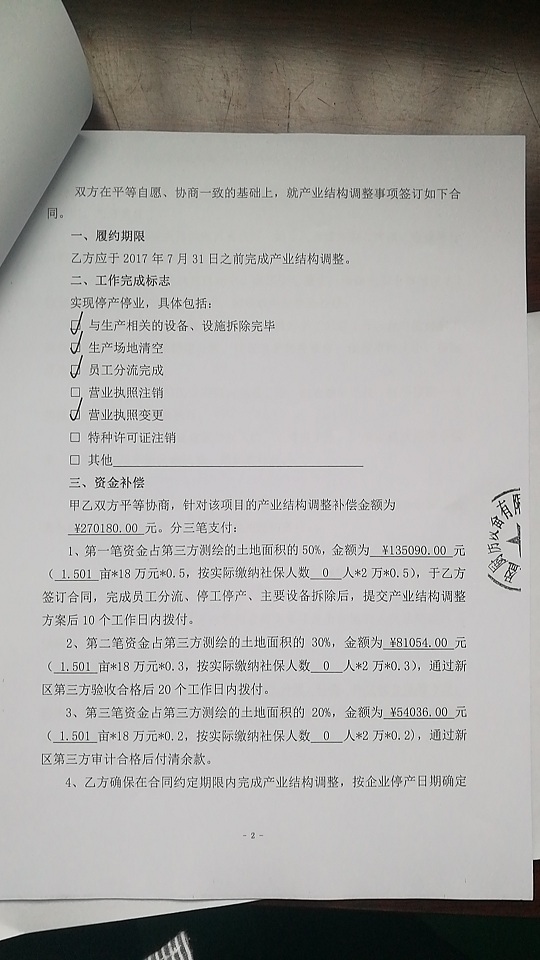 双方在平等自愿、协商一致的基础上，就产业结构调整事项签订如下合
同。
一、履约期限
乙方应于 2017 年 7 月 31 日之前完成产业结构调整。
二、工作完成标志
实现停产停业，具体包括：
☑ 与生产相关的设备、设施拆除完毕
☑ 生产场地清空
☑ 员工分流完成
□ 营业执照注销
☑ 营业执照变更
□ 特种许可证注销
□ 其他
三、资金补偿
甲乙双方平等协商，针对该项目的产业结构调整补偿金额为
¥270180.00 元。分三笔支付：
1、第一笔资金占第三方测绘的土地面积的 50%，金额为 ¥135090.00 元
（ 1.501 亩*18 万元*0.5，按实际缴纳社保人数 0 人*2 万*0.5），于乙方
签订合同，完成员工分流、停工停产、主要设备拆除后，提交产业结构调整
方案后 10 个工作日内拨付。
2、第二笔资金占第三方测绘的土地面积的 30%，金额为 ¥81054.00 元
（ 1.501 亩*18 万元*0.3，按实际缴纳社保人数 0 人*2 万*0.3），通过新
区第三方验收合格后 20 个工作日内拨付。
3、第三笔资金占第三方测绘的土地面积的 20%，金额为 ¥54036.00 元
（ 1.501 亩*18 万元*0.2，按实际缴纳社保人数 0 人*2 万*0.2），通过新
区第三方审计合格后付清余款。
4、乙方确保在合同约定期限内完成产业结构调整，按企业停产日期确定
- 2 -
设备有限